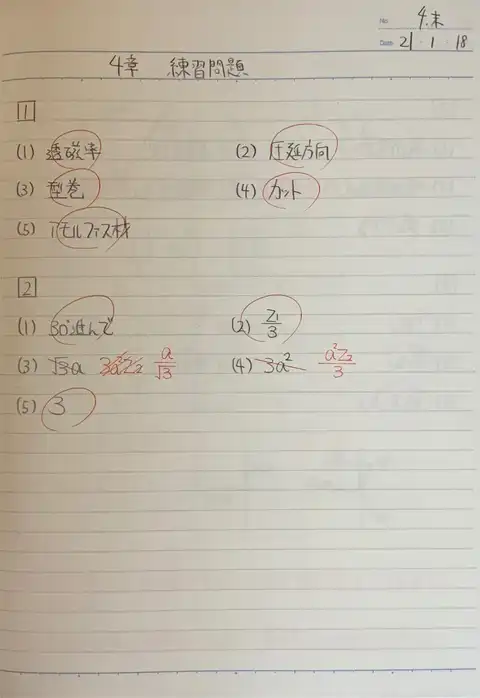 No. 4.末
Date 21・1・18
4章 練習問題
1
(1) 透磁率 (2) 圧延方向
(3) 型巻 (4) カット
(5) アモルファス材
2
(1) 30°進んで (2) Z₁/3
(3) √3a 3a²Z₂ a/√3 (4) 3a² a²Z₂/3
(5) 3